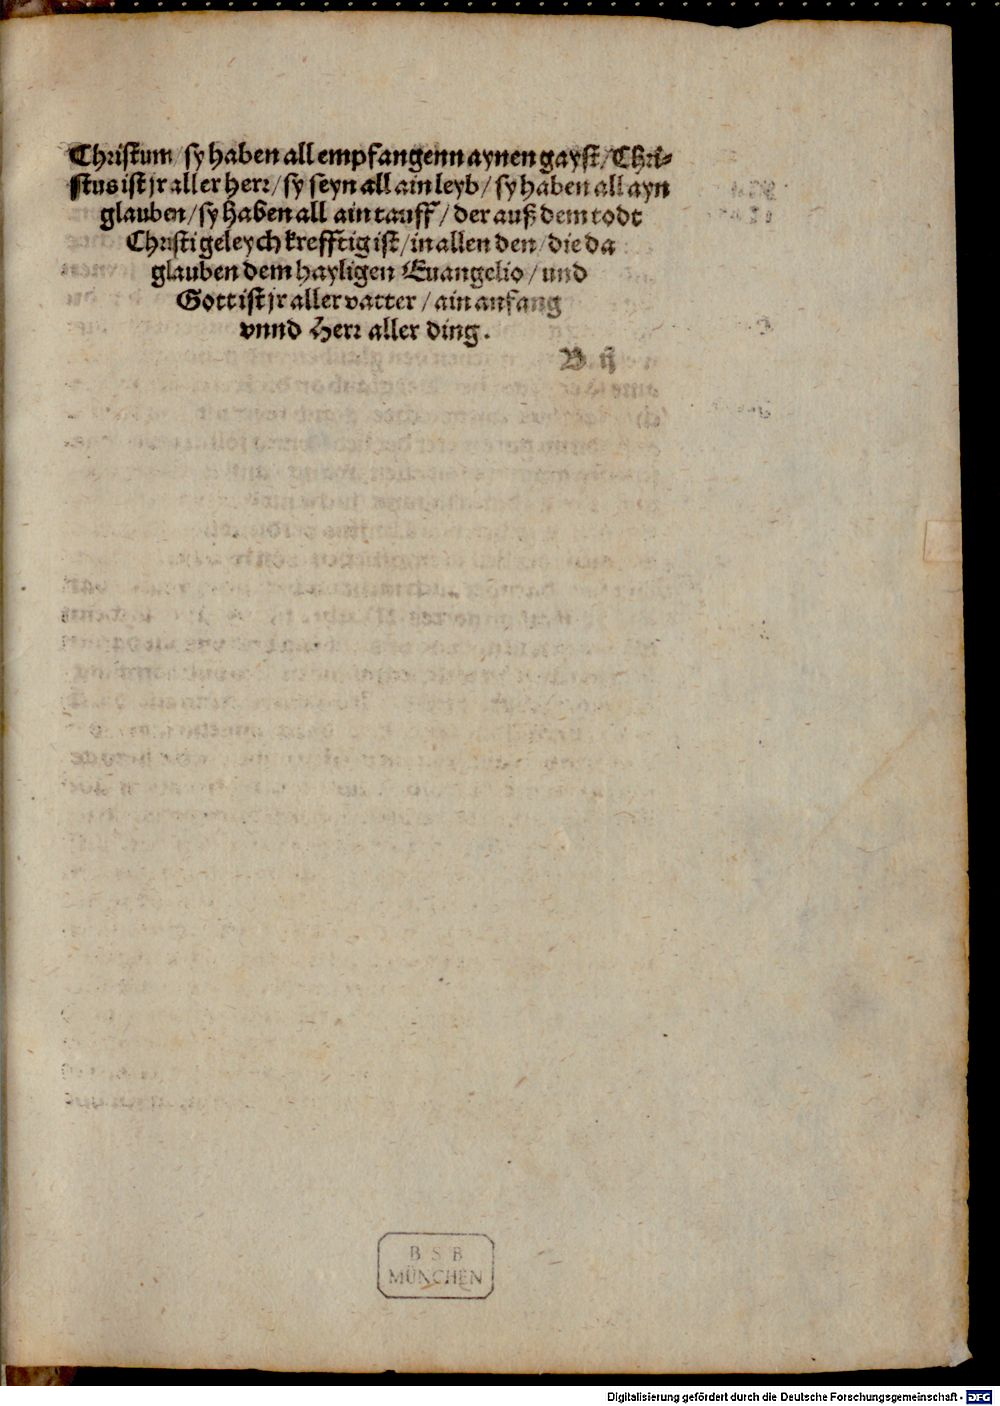 Christum / sy haben all empfangenn aynen gayst / Chri-
stus ist jr aller herr / sy seyn all ain leyb / sy haben all ayn
glauben / sy haben all ain tauff / der auß dem todt
Christi geleych krefftig ist / in allen den / die da
glauben dem hayligen Euangelio / und
Gott ist jr aller vatter / ain anfang
vnnd Herr aller ding.
B ij
B S B
MÜNCHEN
Digitalisierung gefördert durch die Deutsche Forschungsgemeinschaft - DFG